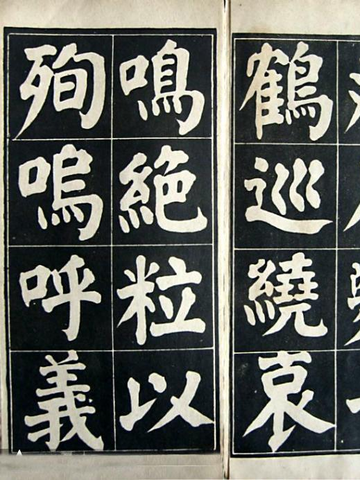 鶴巡繞哀
鳴絶粒以
殉嗚呼義